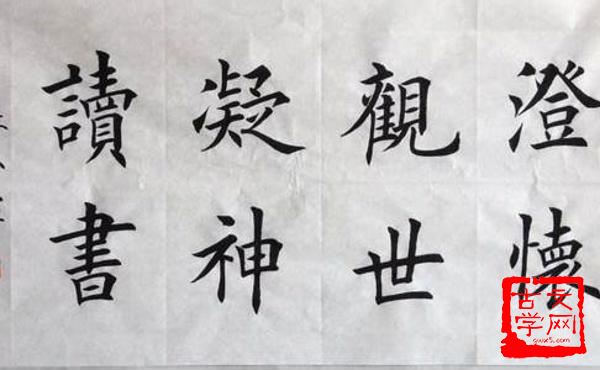 澄懷
觀世
凝神
讀書
古文
学网
gwx5.com